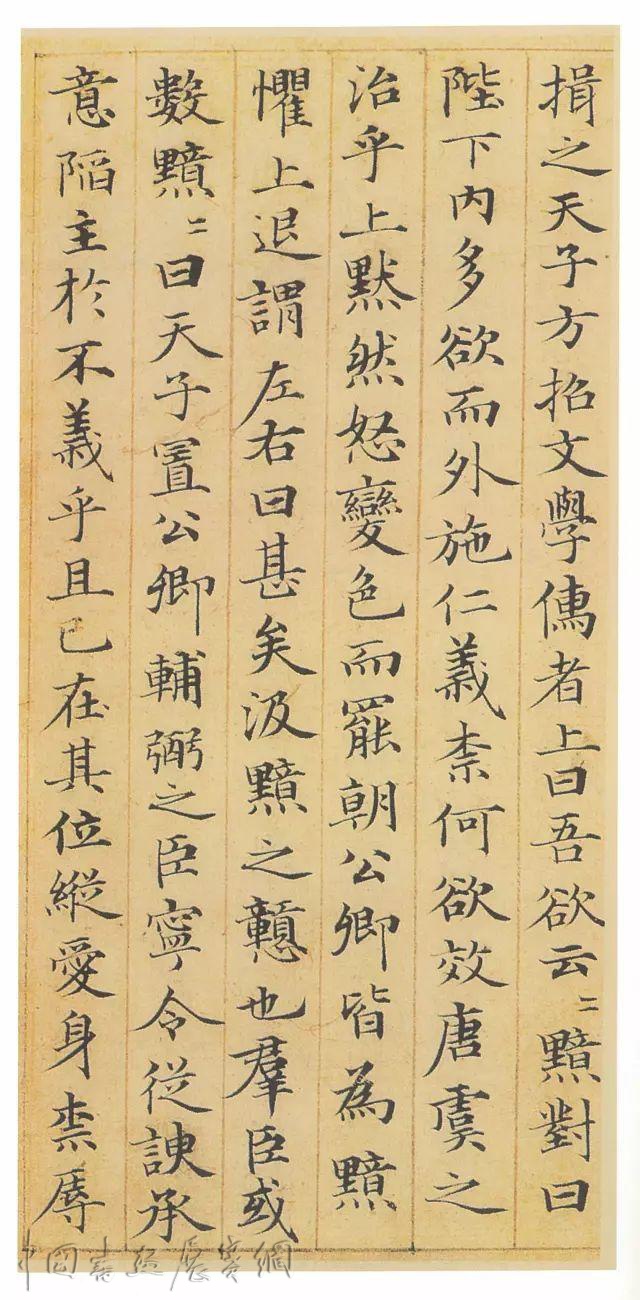 揖之天子方招文學儁者上曰吾欲云〻黯對曰
陛下內多欲而外施仁義柰何欲效唐虞之
治乎上黙然怒變色而罷朝公卿皆為黯
懼上退謂左右曰甚矣汲黯之戇也羣臣或
數黯〻曰天子置公卿輔弼之臣寧令從諛承
意陷主於不義乎且已在其位縱愛身柰辱
中國書法展賽網